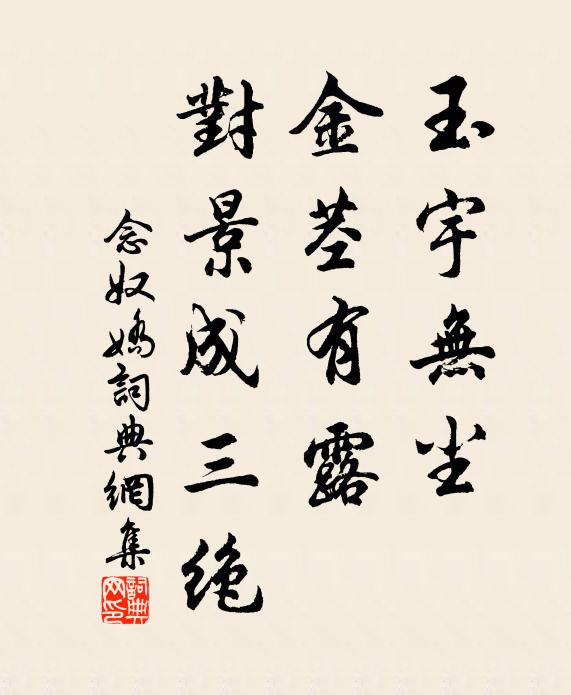 玉宇無尘
金茎有露
對景成三绝
念奴嬌詞典網集
詞典网印